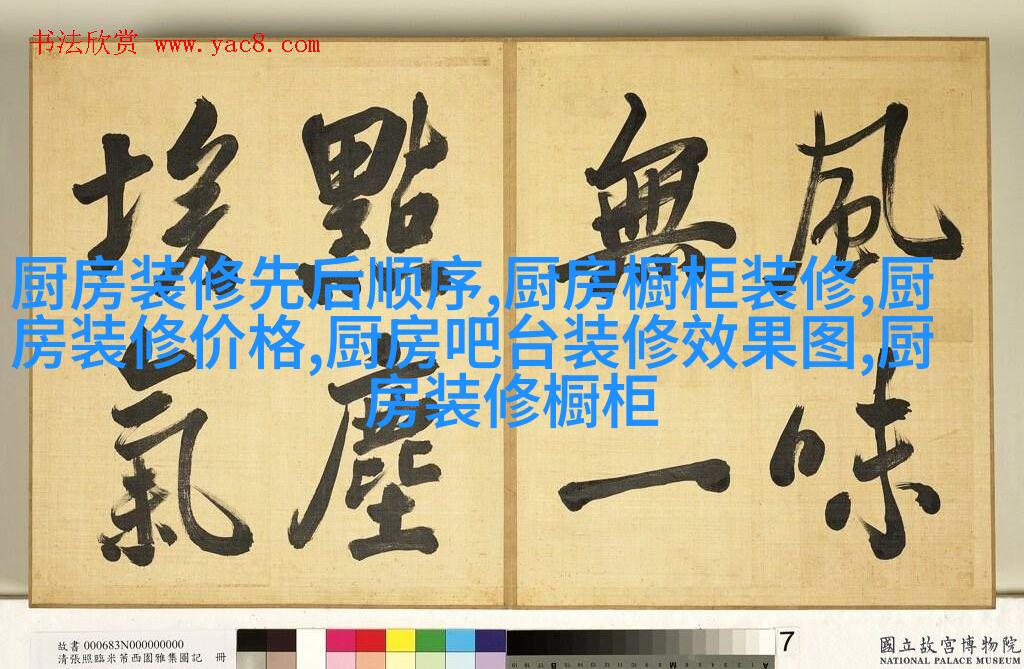 书法欣赏 www.yac8.com
風味
無一
點塵
埃氣
厨房装修先后顺序,厨房橱柜装修,厨
房装修价格,厨房吧台装修效果图,厨
房装修橱柜
故書 000683N000000000
清張照臨米芾西園雅集圖記 冊
7
國立故宮博物院
NATIONAL PALACE MUSEUM